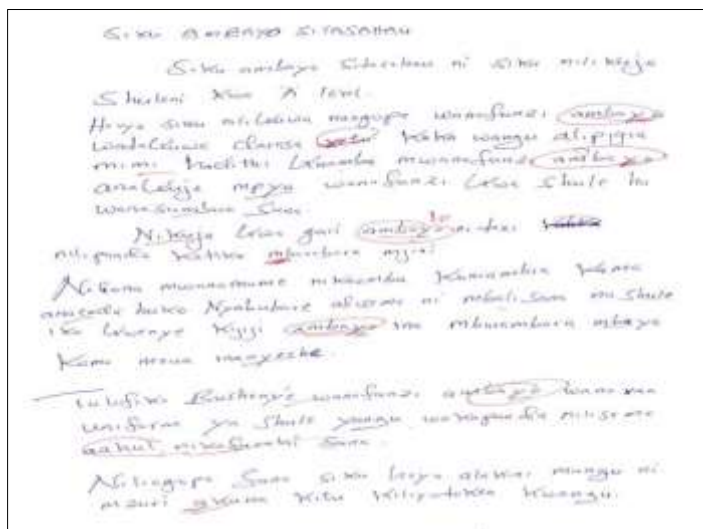 SIKU AMBAYO SITASAHAU
Siku ambayo sitasahau ni siku nilikuja
Shuleni kwa A level.
Hiyo siku nilikuwa naogopa wanafunzi ambayo
walikuwa yetu kaka wangu alipigia
mimi hadithi kwamba mwanafunzi ambayo
anakuja mpya wanafunzi kwa shule hu
wanasumbua sana.
Nikuja kwa gari ambayo
nilipanda katika mbarabara mjini
Nikaona mwanamume nikaenda kumuambia kama
anaenda huko Nyabubare alisema ni mbali sana na shule
iko kwenye kijiji ambayo ina mbarambara mbaya
kama mvua inanyeshe.
Tulufika Bushenyi wanafunzi ambayo wana
uniform ya shule yangu wakapanda nilisema
aahu! nikafurahi sana.
Niliogopa sana siku hiyo alakini mungu ni
mzuri akuna kitu kiliyotokea kwangu.